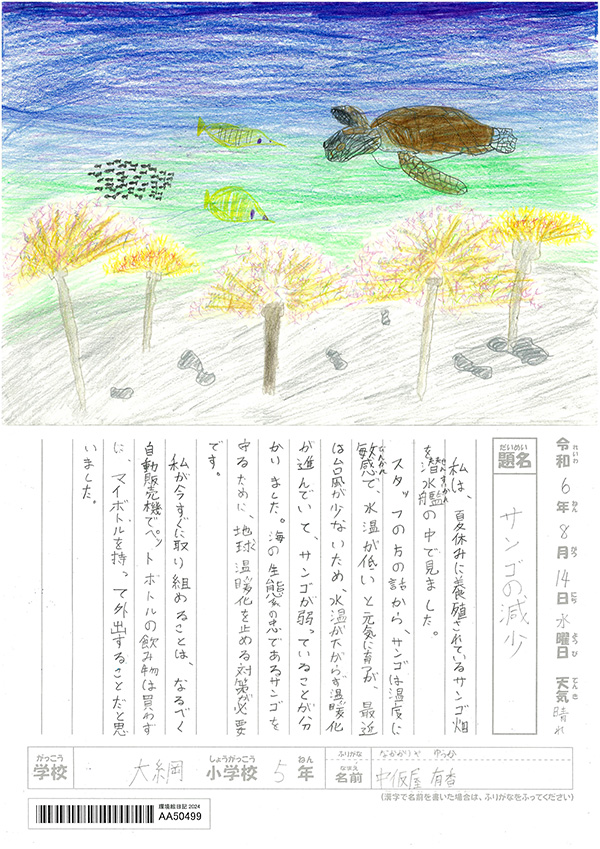 令和6年8月14日水曜日 天気 晴れ
れいわ ねん がつ にち ようび てんき
だいめい
題名 サンゴの減少
私は、夏休みに養殖されているサンゴ畑
を潜水艦の中で見ました。
せんすいかん
スタッフの方の話から、サンゴは温度に
敏感で、水温が低いと元気に育つが、最近
びんかん
は台風が少ないため、水温が下がらず温暖化
が進んでいて、サンゴが弱っていることが分
かりました。海の生態系の息であるサンゴを
守るために、地球温暖化を止める対策が必要
です。
私が今すぐに取り組めることは、なるべく
自動販売機でペットボトルの飲み物は買わず
に、マイボトルを持って外出することだと思
いました。
がっこう しょうがっこう ねん ふりがな なかかりや ゆうか
学校 大綱 小学校 5年 なまえ 名前 中仮屋 有香
(漢字で名前を書いた場合は、ふりがなをふってください)
環境絵日記 2024
AA50499